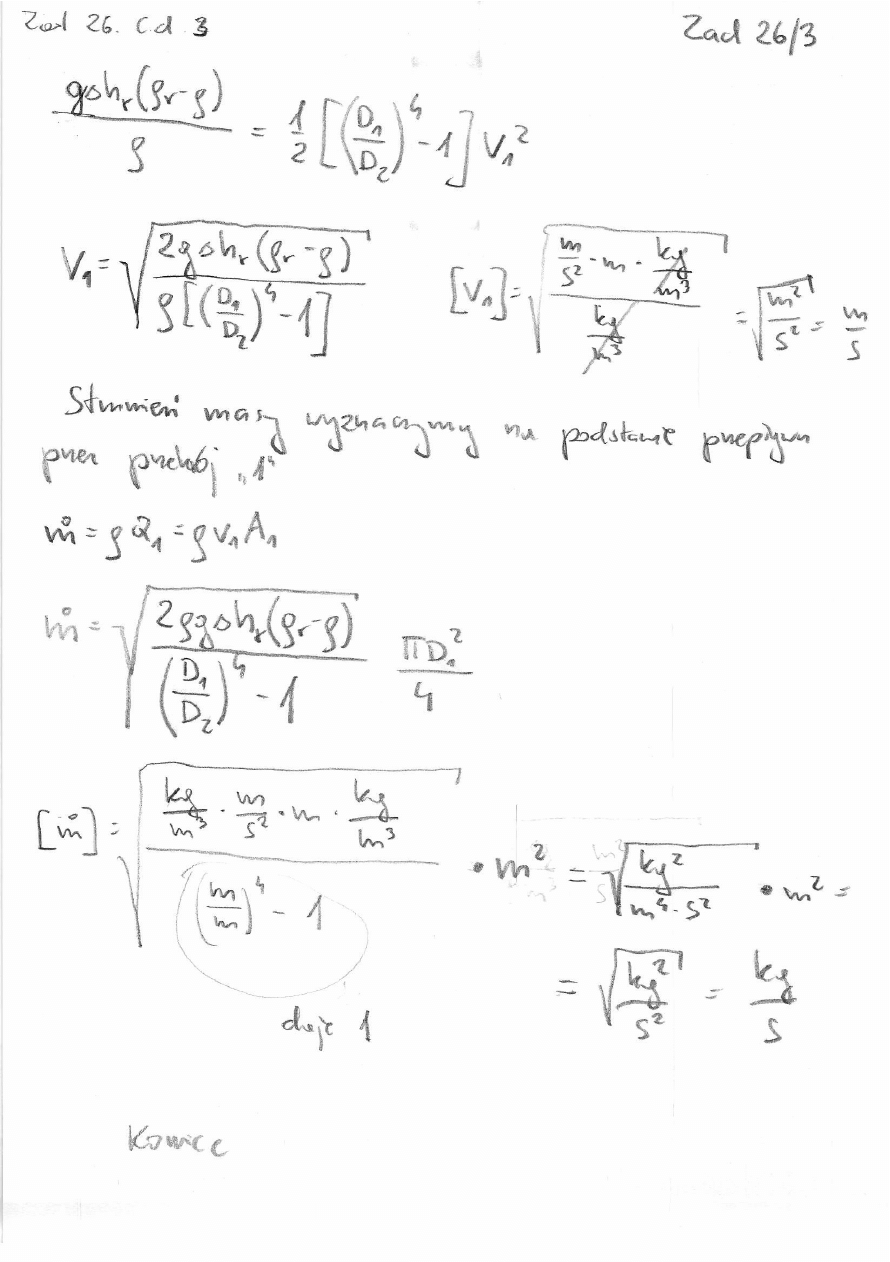 Zad 26. cd 3
Zad 26/3
gΔhᵣ(ρᵣ-ρ) / ρ = 1/2 [(D₁/D₂)⁴ - 1] V₁²
V₁ = √(2gΔhᵣ(ρᵣ-ρ) / ρ[(D₁/D₂)⁴ - 1])
[V₁] = √((m/s² · m · kg/m³) / (kg/m³)) = √(m²/s²) = m/s
Strumień masy wyznaczymy na podstawie przepływu
przez przekrój „1"
ṁ = ρQ₁ = ρV₁A₁
ṁ = √(2ρgΔhᵣ(ρᵣ-ρ) / ((D₁/D₂)⁴ - 1)) πD₁²/4
[ṁ] = √((kg/m³ · m/s² · m · kg/m³) / ((m/m)⁴ - 1)) · m² = √(kg²/(m⁴·s²)) · m² =
= √(kg²/s²) = kg/s
daje 1
Koniec